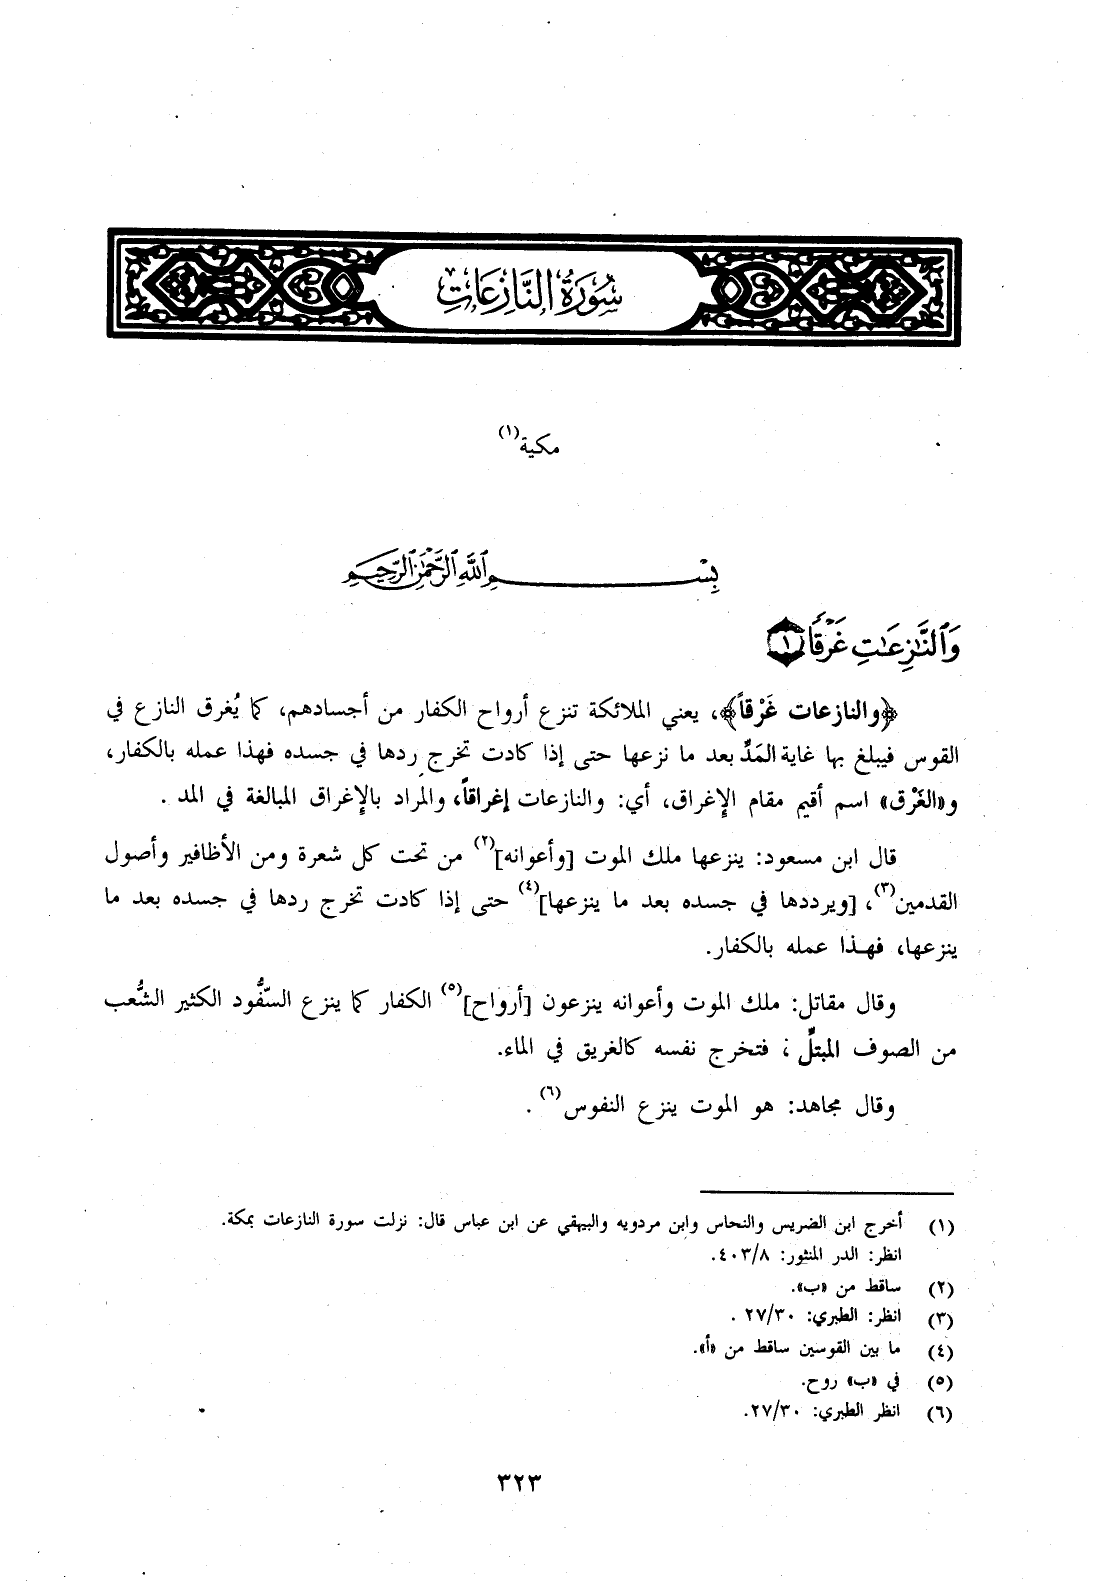 سُورَةُ النَّازِعَاتِ
مكية(١)
بِسْمِ ٱللَّهِ ٱلرَّحْمَٰنِ ٱلرَّحِيمِ
وَٱلنَّٰزِعَٰتِ غَرْقًا ١
﴿والنازعات غَرْقاً﴾، يعني الملائكة تنزع أرواح الكفار من أجسادهم، كما يُغرق النازع في
القوس فيبلغ بها غاية المَدِّ بعد ما نزعها حتى إذا كادت تخرج ردها في جسده فهذا عمله بالكفار،
و«الغَرْق» اسم أقيم مقام الإغراق، أي: والنازعات إغراقاً، والمراد بالإغراق المبالغة في المد .
قال ابن مسعود: ينزعها ملك الموت [وأعوانه](٢) من تحت كل شعرة ومن الأظافير وأصول
القدمين(٣)، [ويرددها في جسده بعد ما ينزعها](٤) حتى إذا كادت تخرج ردها في جسده بعد ما
ينزعها، فهذا عمله بالكفار.
وقال مقاتل: ملك الموت وأعوانه ينزعون [أرواح](٥) الكفار كما ينزع السّفُّود الكثير الشُّعب
من الصوف المبتلِّ؛ فتخرج نفسه كالغريق في الماء.
وقال مجاهد: هو الموت ينزع النفوس(٦) .
(١) أخرج ابن الضريس والنحاس وابن مردويه والبيهقي عن ابن عباس قال: نزلت سورة النازعات بمكة.
انظر: الدر المنثور: ٤٠٣/٨.
(٢) ساقط من «ب».
(٣) انظر: الطبري: ٢٧/٣٠ .
(٤) ما بين القوسين ساقط من «أ».
(٥) في «ب» روح.
(٦) انظر الطبري: ٢٧/٣٠.
٣٢٣